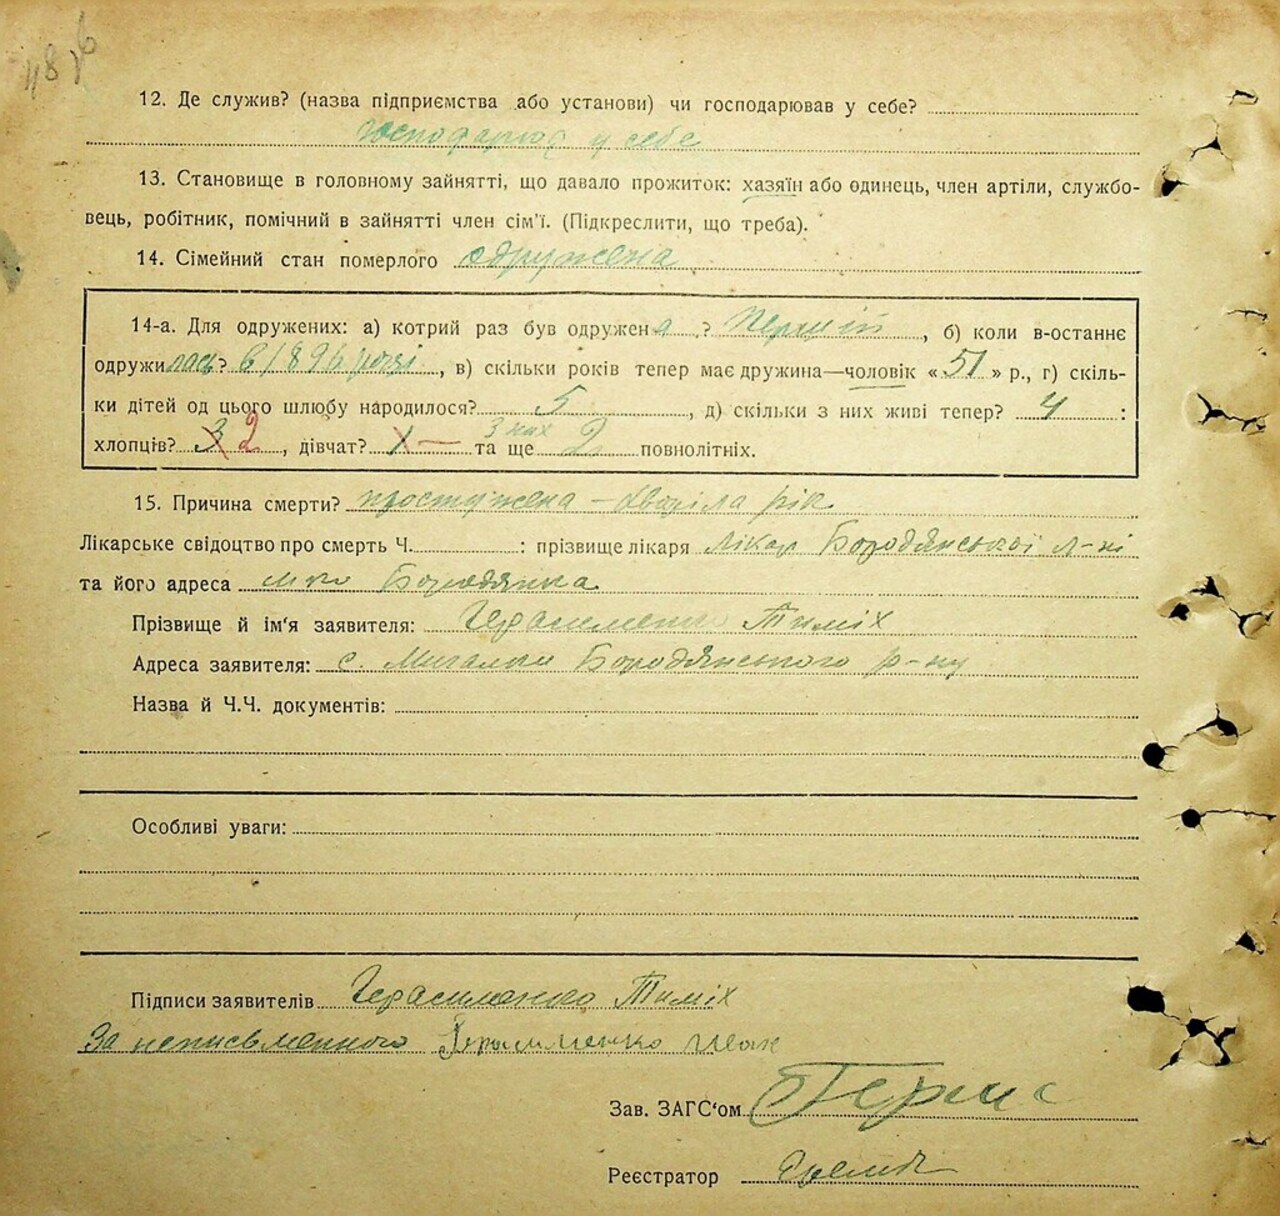 12. Де служив? (назва підприємства або установи) чи господарював у себе?
господарює у себе
13. Становище в головному зайнятті, що давало прожиток: хазяїн або одинець, член артіли, службо-
вець, робітник, помічний в зайнятті член сім'ї. (Підкреслити, що треба).
14. Сімейний стан померлого одружена
14-а. Для одружених: а) котрий раз був одружена? перший, б) коли в-останнє
одружилась? в 1896 році, в) скільки років тепер має дружина—чоловік «51» р., г) скіль-
ки дітей од цього шлюбу народилося? 5, д) скільки з них живі тепер? 4:
хлопців? 3 2, дівчат? 1 — та ще з них 2 повнолітніх.
15. Причина смерти? простужена — хворіла рік
Лікарське свідоцтво про смерть Ч. : прізвище лікаря Лікар Бородянської л-ні
та його адреса м-ко Бородянка
Прізвище й ім'я заявителя: Герасименко Тиміх
Адреса заявителя: с. Мигалки Бородянського р-ну
Назва й Ч.Ч. документів:
Особливі уваги:
Підписи заявителів Герасименко Тиміх
За неписьменного Герасименко
Зав. ЗАГС'ом
Реєстратор